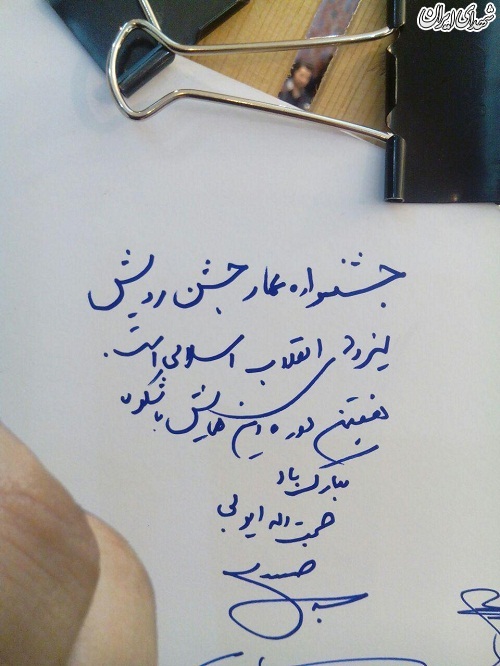 شهدای ایران
جشنواره عمار جشن رویش
انقلاب اسلامی است.
هفتمین دوره این همایش باشکوه
مبارک باد
همت اله ایوبی